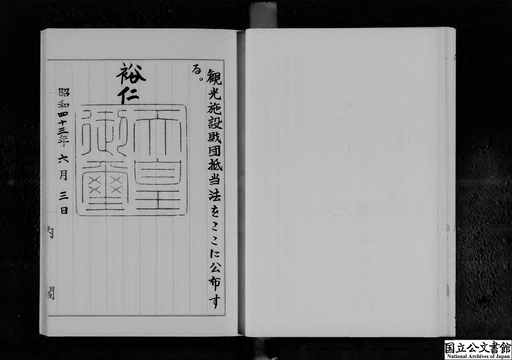 観光施設財団抵当法をここに公布す
る。
裕仁
天皇
御璽
昭和四十三年六月三日
内閣
国立公文書館
National Archives of Japan